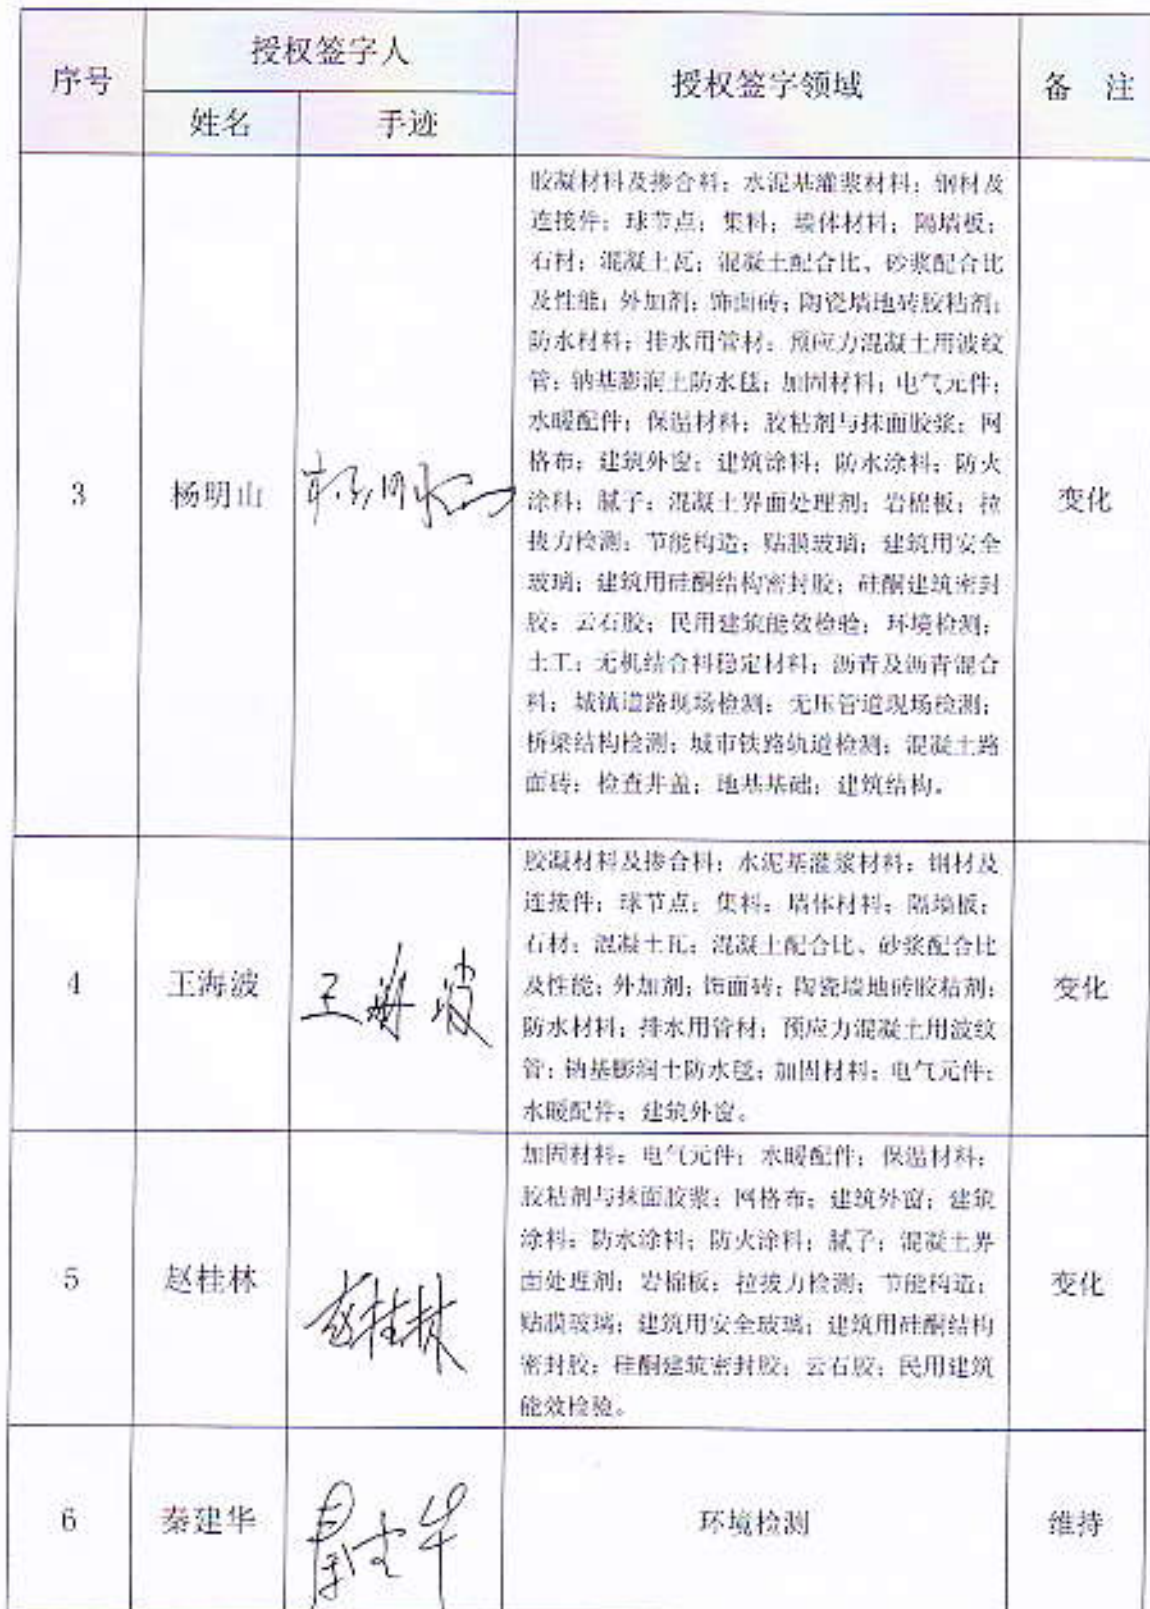 序号
授权签字人
授权签字领域
备 注
姓名
手迹
3
杨明山
胶凝材料及掺合料；水泥基灌浆材料；钢材及
连接件；球节点；集料；墙体材料；隔墙板；
石材；混凝土瓦；混凝土配合比、砂浆配合比
及性能；外加剂；饰面砖；陶瓷墙地砖胶粘剂；
防水材料；排水用管材；预应力混凝土用波纹
管；钠基膨润土防水毯；加固材料；电气元件；
水暖配件；保温材料；胶粘剂与抹面胶浆；网
格布；建筑外窗；建筑涂料；防水涂料；防火
涂料；腻子；混凝土界面处理剂；岩棉板；拉
拔力检测；节能构造；贴膜玻璃；建筑用安全
玻璃；建筑用硅酮结构密封胶；硅酮建筑密封
胶；云石胶；民用建筑能效检验；环境检测；
土工；无机结合料稳定材料；沥青及沥青混合
料；城镇道路现场检测；无压管道现场检测；
桥梁结构检测；城市铁路轨道检测；混凝土路
面砖；检查井盖；地基基础；建筑结构。
变化
4
王海波
王海波
胶凝材料及掺合料；水泥基灌浆材料；钢材及
连接件；球节点；集料；墙体材料；隔墙板；
石材；混凝土瓦；混凝土配合比、砂浆配合比
及性能；外加剂；饰面砖；陶瓷墙地砖胶粘剂；
防水材料；排水用管材；预应力混凝土用波纹
管；钠基膨润土防水毯；加固材料；电气元件；
水暖配件；建筑外窗。
变化
5
赵桂林
赵桂林
加固材料；电气元件；水暖配件；保温材料；
胶粘剂与抹面胶浆；网格布；建筑外窗；建筑
涂料；防水涂料；防火涂料；腻子；混凝土界
面处理剂；岩棉板；拉拔力检测；节能构造；
贴膜玻璃；建筑用安全玻璃；建筑用硅酮结构
密封胶；硅酮建筑密封胶；云石胶；民用建筑
能效检验。
变化
6
秦建华
环境检测
维持